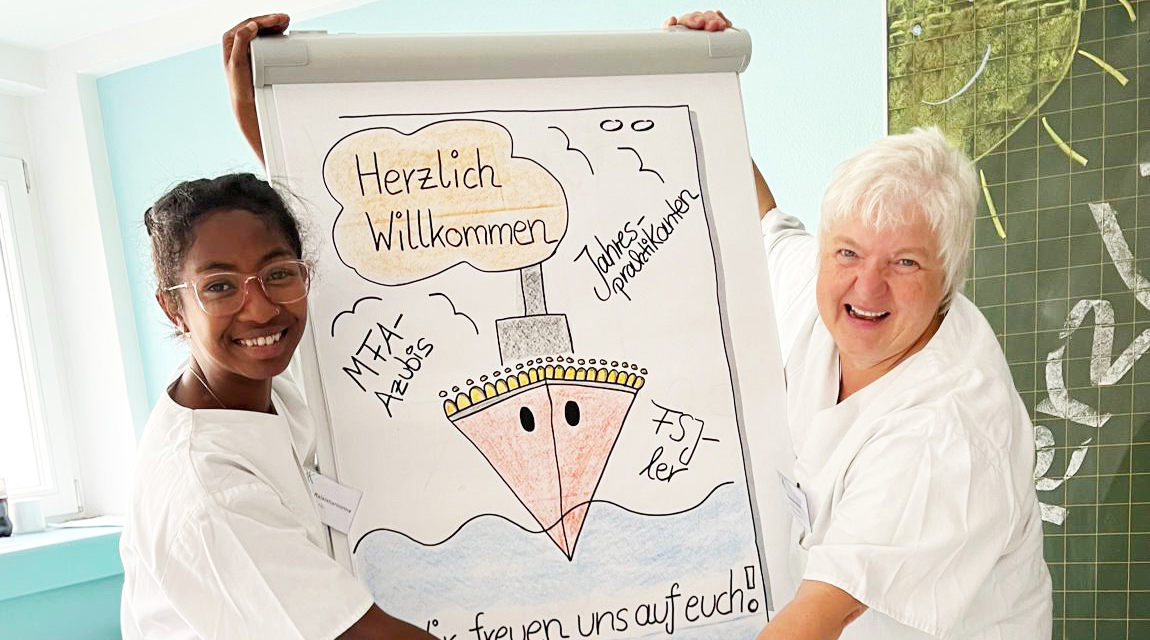 Herzlich
Willkommen
Jahres-
praktikanten
MFA-
Azubis
FSJ-
ler
freuen uns auf euch!